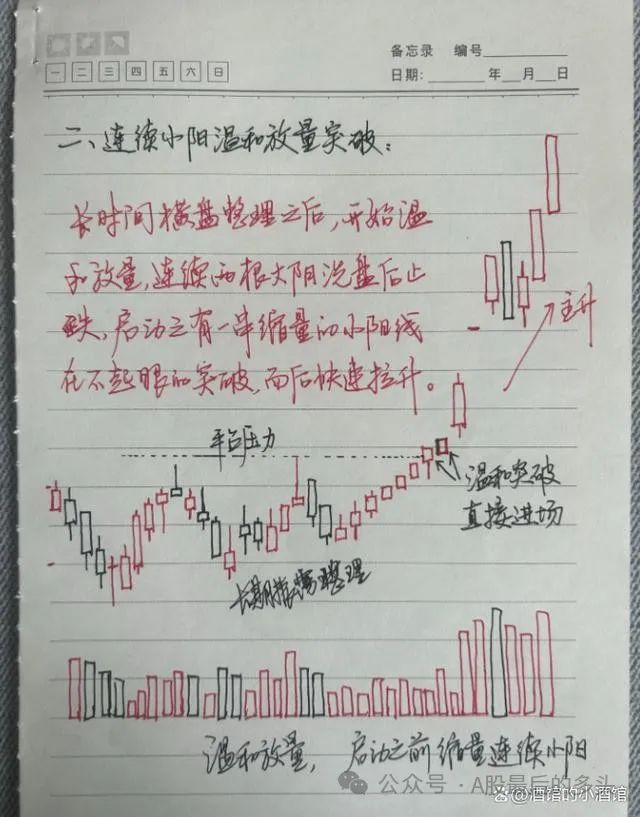 备忘录 编号
一 二 三 四 五 六 日
日期: 年 月 日
二、连续小阳温和放量突破：
长时间横盘整理之后，开始温
和放量，连续两根大阴洗盘后止
跌，启动之有一串缩量的小阳线
在不起眼的突破，而后快速拉升。
主升
平台压力
温和突破
直接进场
长期横盘整理
温和放量，启动之前缩量连续小阳
公众号·A股最后的多头
@酒馆的小酒馆